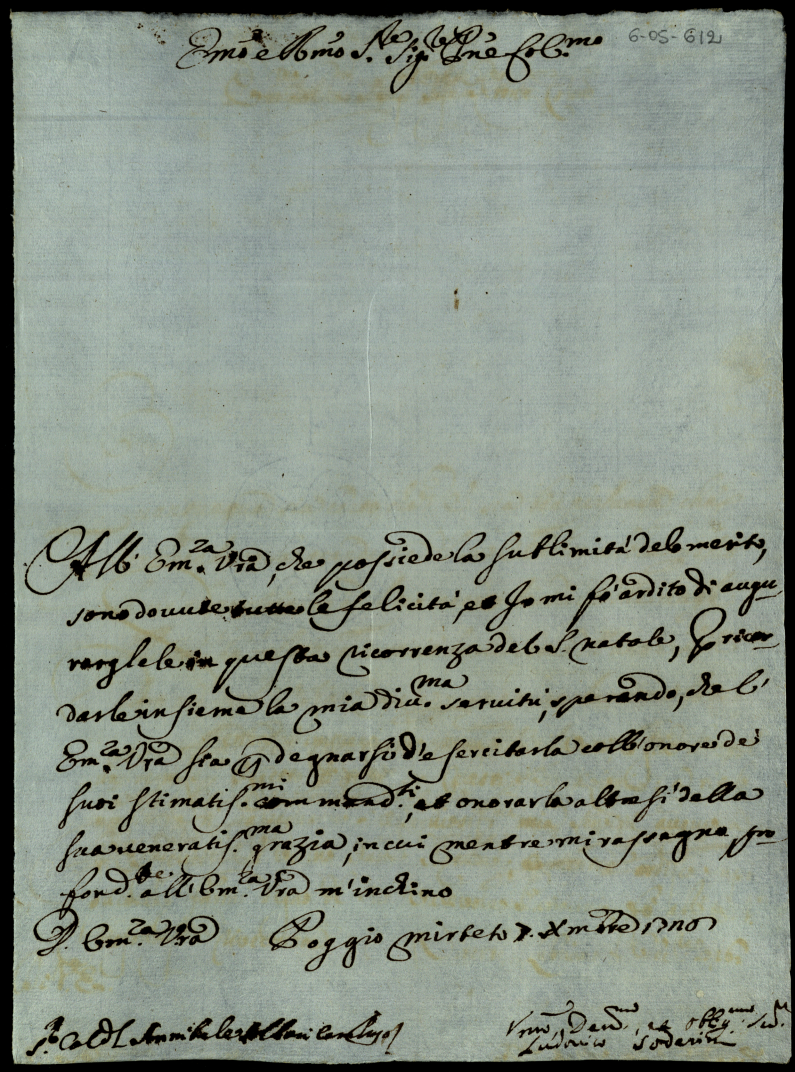 Emo e Rmo Sre Sigre Pne Colmo
6-05-612
All' Em.za Vra, che possiede la sublimità del merito,
sono dovute tutte le felicità, et Io mi fò ardito di augu-
rargliele in questa ricorrenza del S. natale, e ricor-
darle insieme la mia div.ma servitù, sperando, che l'
Em.za Vra sia p degnarsi d'esercitarla coll'onore de'
suoi stimatis.mi commandti, et onorarla altresì della
sua veneratis.ma grazia, in cui mentre mi rassegno, pro-
fond.te all' Em.za Vra m'inchino
D. Em.za Vra Poggio mirteto Xmbre
Sr Cardl Annibale Albani
Vmo, Devmo, et obbgmo Sre
Ludovico Soderini